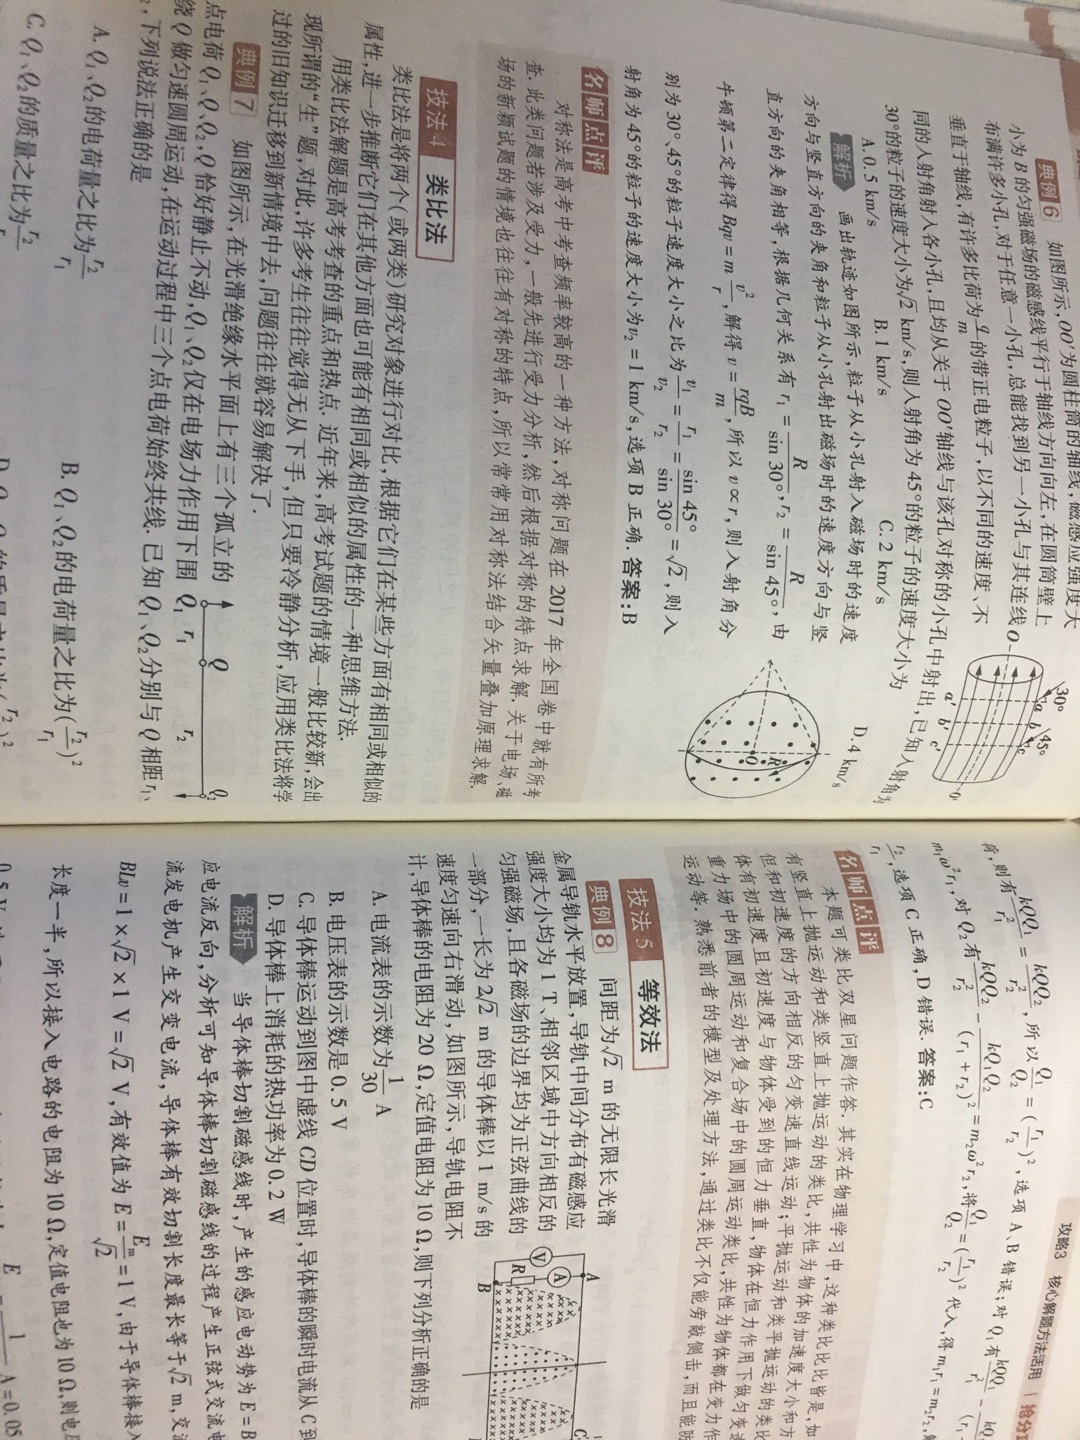 典例6 如图所示,OO'为圆柱筒的轴线,磁感应强度大
小为B的匀强磁场的磁感线平行于轴线方向向左,在圆筒壁上
布满许多小孔,对于任意一小孔,总能找到另一小孔与其连线
垂直于轴线,有许多比荷为q/m的带正电粒子,以不同的速度、不
同的入射角射入各小孔,且均从关于OO'轴线与该孔对称的小孔中射出,已知入射角为
30°的粒子的速度大小为√2 km/s,则入射角为45°的粒子的速度大小为
A.0.5 km/s B.1 km/s C.2 km/s D.4 km/s
30°
45°
a b c
a' b' c'
O
解析 画出轨迹如图所示,粒子从小孔射入磁场时的速度
方向与竖直方向的夹角和粒子从小孔射出磁场时的速度方向与竖
直方向的夹角相等,根据几何关系有r₁=R/sin 30°,r₂=R/sin 45°,由
牛顿第二定律得Bqv=m v²/r,解得v=rqB/m,所以v∝r,则入射角分
别为30°、45°的粒子速度大小之比为v₁/v₂=r₁/r₂=sin 45°/sin 30°=√2,则入
射角为45°的粒子的速度大小为v₂=1 km/s,选项B正确.答案:B
O R
名师点评
对称法是高考中考查频率较高的一种方法,对称问题在2017年全国卷中就有所考
查.此类问题若涉及受力,一般先进行受力分析,然后根据对称的特点求解.关于电场、磁
场的新颖试题的情境也往往有对称的特点,所以常常用对称法结合矢量叠加原理求解.
技法4 类比法
类比法是将两个(或两类)研究对象进行对比,根据它们在某些方面有相同或相似的
属性,进一步推断它们在其他方面也可能有相同或相似的属性的一种思维方法.
用类比法解题是高考考查的重点和热点.近年来,高考试题的情境一般比较新,会出
现所谓的“生”题,对此,许多考生往往觉得无从下手,但只要冷静分析,应用类比法将学
过的旧知识迁移到新情境中去,问题往往就容易解决了.
典例7 如图所示,在光滑绝缘水平面上有三个孤立的
点电荷Q₁、Q、Q₂,Q恰好静止不动,Q₁、Q₂仅在电场力作用下围
绕Q做匀速圆周运动,在运动过程中三个点电荷始终共线.已知Q₁、Q₂分别与Q相距r₁、
,下列说法正确的是
Q₁ Q Q₂
r₁ r₂
A.Q₁、Q₂的电荷量之比为r₂/r₁ B.Q₁、Q₂的电荷量之比为(r₂/r₁)²
C.Q₁、Q₂的质量之比为r₂
攻略3 核心解题方法活用 | 抢分
前,则有kQQ₁/r₁²=kQQ₂/r₂²,所以Q₁/Q₂=(r₁/r₂)²,选项A、B错误;对Q₁有kQQ₁/r₁²-
m₁ω²r₁,对Q₂有kQQ₂/r₂²-kQ₁Q₂/(r₁+r₂)²=m₂ω²r₂,将Q₁/Q₂=(r₁/r₂)²代入,得m₁r₁=m₂r₂,
r₂/r₁,选项C正确,D错误.答案:C
名师点评
本题可类比双星问题作答.其实在物理学习中,这种类比比比皆是,如
有竖直上抛运动和类竖直上抛运动的类比,共性为物体的加速度大小和方
但和初速度的方向相反的匀变速直线运动;平抛运动和类平抛运动的类比
体有初速度且初速度与物体受到的恒力垂直,物体在恒力作用下做匀变速
重力场中的圆周运动和复合场中的圆周运动类比,共性为物体都在变力作
运动等.熟悉前者的模型及处理方法,通过类比不仅能旁敲侧击,而且能
技法5 等效法
典例8 间距为√2 m的无限长光滑
金属导轨水平放置,导轨中间分布有磁感应
强度大小均为1 T、相邻区域中方向相反的
匀强磁场,且各磁场的边界均为正弦曲线的
一部分,一长为2√2 m的导体棒以1 m/s的
速度匀速向右滑动,如图所示,导轨电阻不
计,导体棒的电阻为20 Ω,定值电阻为10 Ω,则下列分析正确的是
A
V
R
B
A
C
A.电流表的示数为1/30 A
B.电压表的示数是0.5 V
C.导体棒运动到图中虚线CD位置时,导体棒的瞬时电流从C到
D.导体棒上消耗的热功率为0.2 W
解析 当导体棒切割磁感线时,产生的感应电动势为E=B
应电流反向,分析可知导体棒切割磁感线的过程产生正弦式交流电
流发电机产生交变电流,导体棒有效切割长度最长等于√2 m,交流
BLv=1×√2×1 V=√2 V,有效值为E=Eₘ/√2=1 V,由于导体棒接入
长度一半,所以接入电路的电阻为10 Ω,定值电阻也为10 Ω,则电
A=0.05